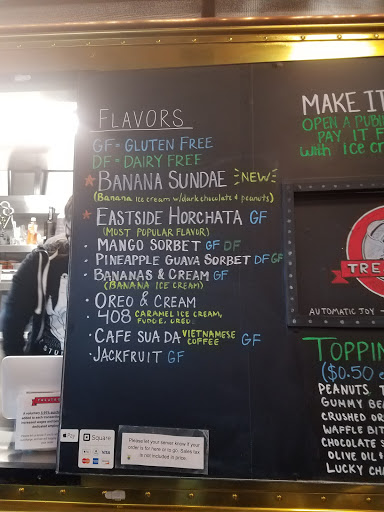 FLAVORS
GF = GLUTEN FREE
DF = DAIRY FREE
* BANANA SUNDAE NEW
(Banana ice cream w/dark chocolate & peanuts)
* EASTSIDE HORCHATA GF
(MOST POPULAR FLAVOR)
• MANGO SORBET GF DF
• PINEAPPLE GUAVA SORBET DF GF
• BANANAS & CREAM GF
(BANANA ICE CREAM)
• OREO & CREAM
• 408 CARAMEL ICE CREAM,
FUDGE, OREO
• CAFE SUA DA VIETNAMESE
COFFEE GF
• JACKFRUIT GF
MAKE IT
OPEN A
PAY IT F
with ice cr
TRE
AUTOMATIC JOY
TOPPIN
($0.50
PEANUTS
GUMMY BEA
CRUSHED OR
WAFFLE BIT
CHOCOLATE S
OLIVE OIL &
LUCKY CHA
Pay
Square
VISA
Please let your server know if your
order is for here or to go. Sales tax
is not included in price.